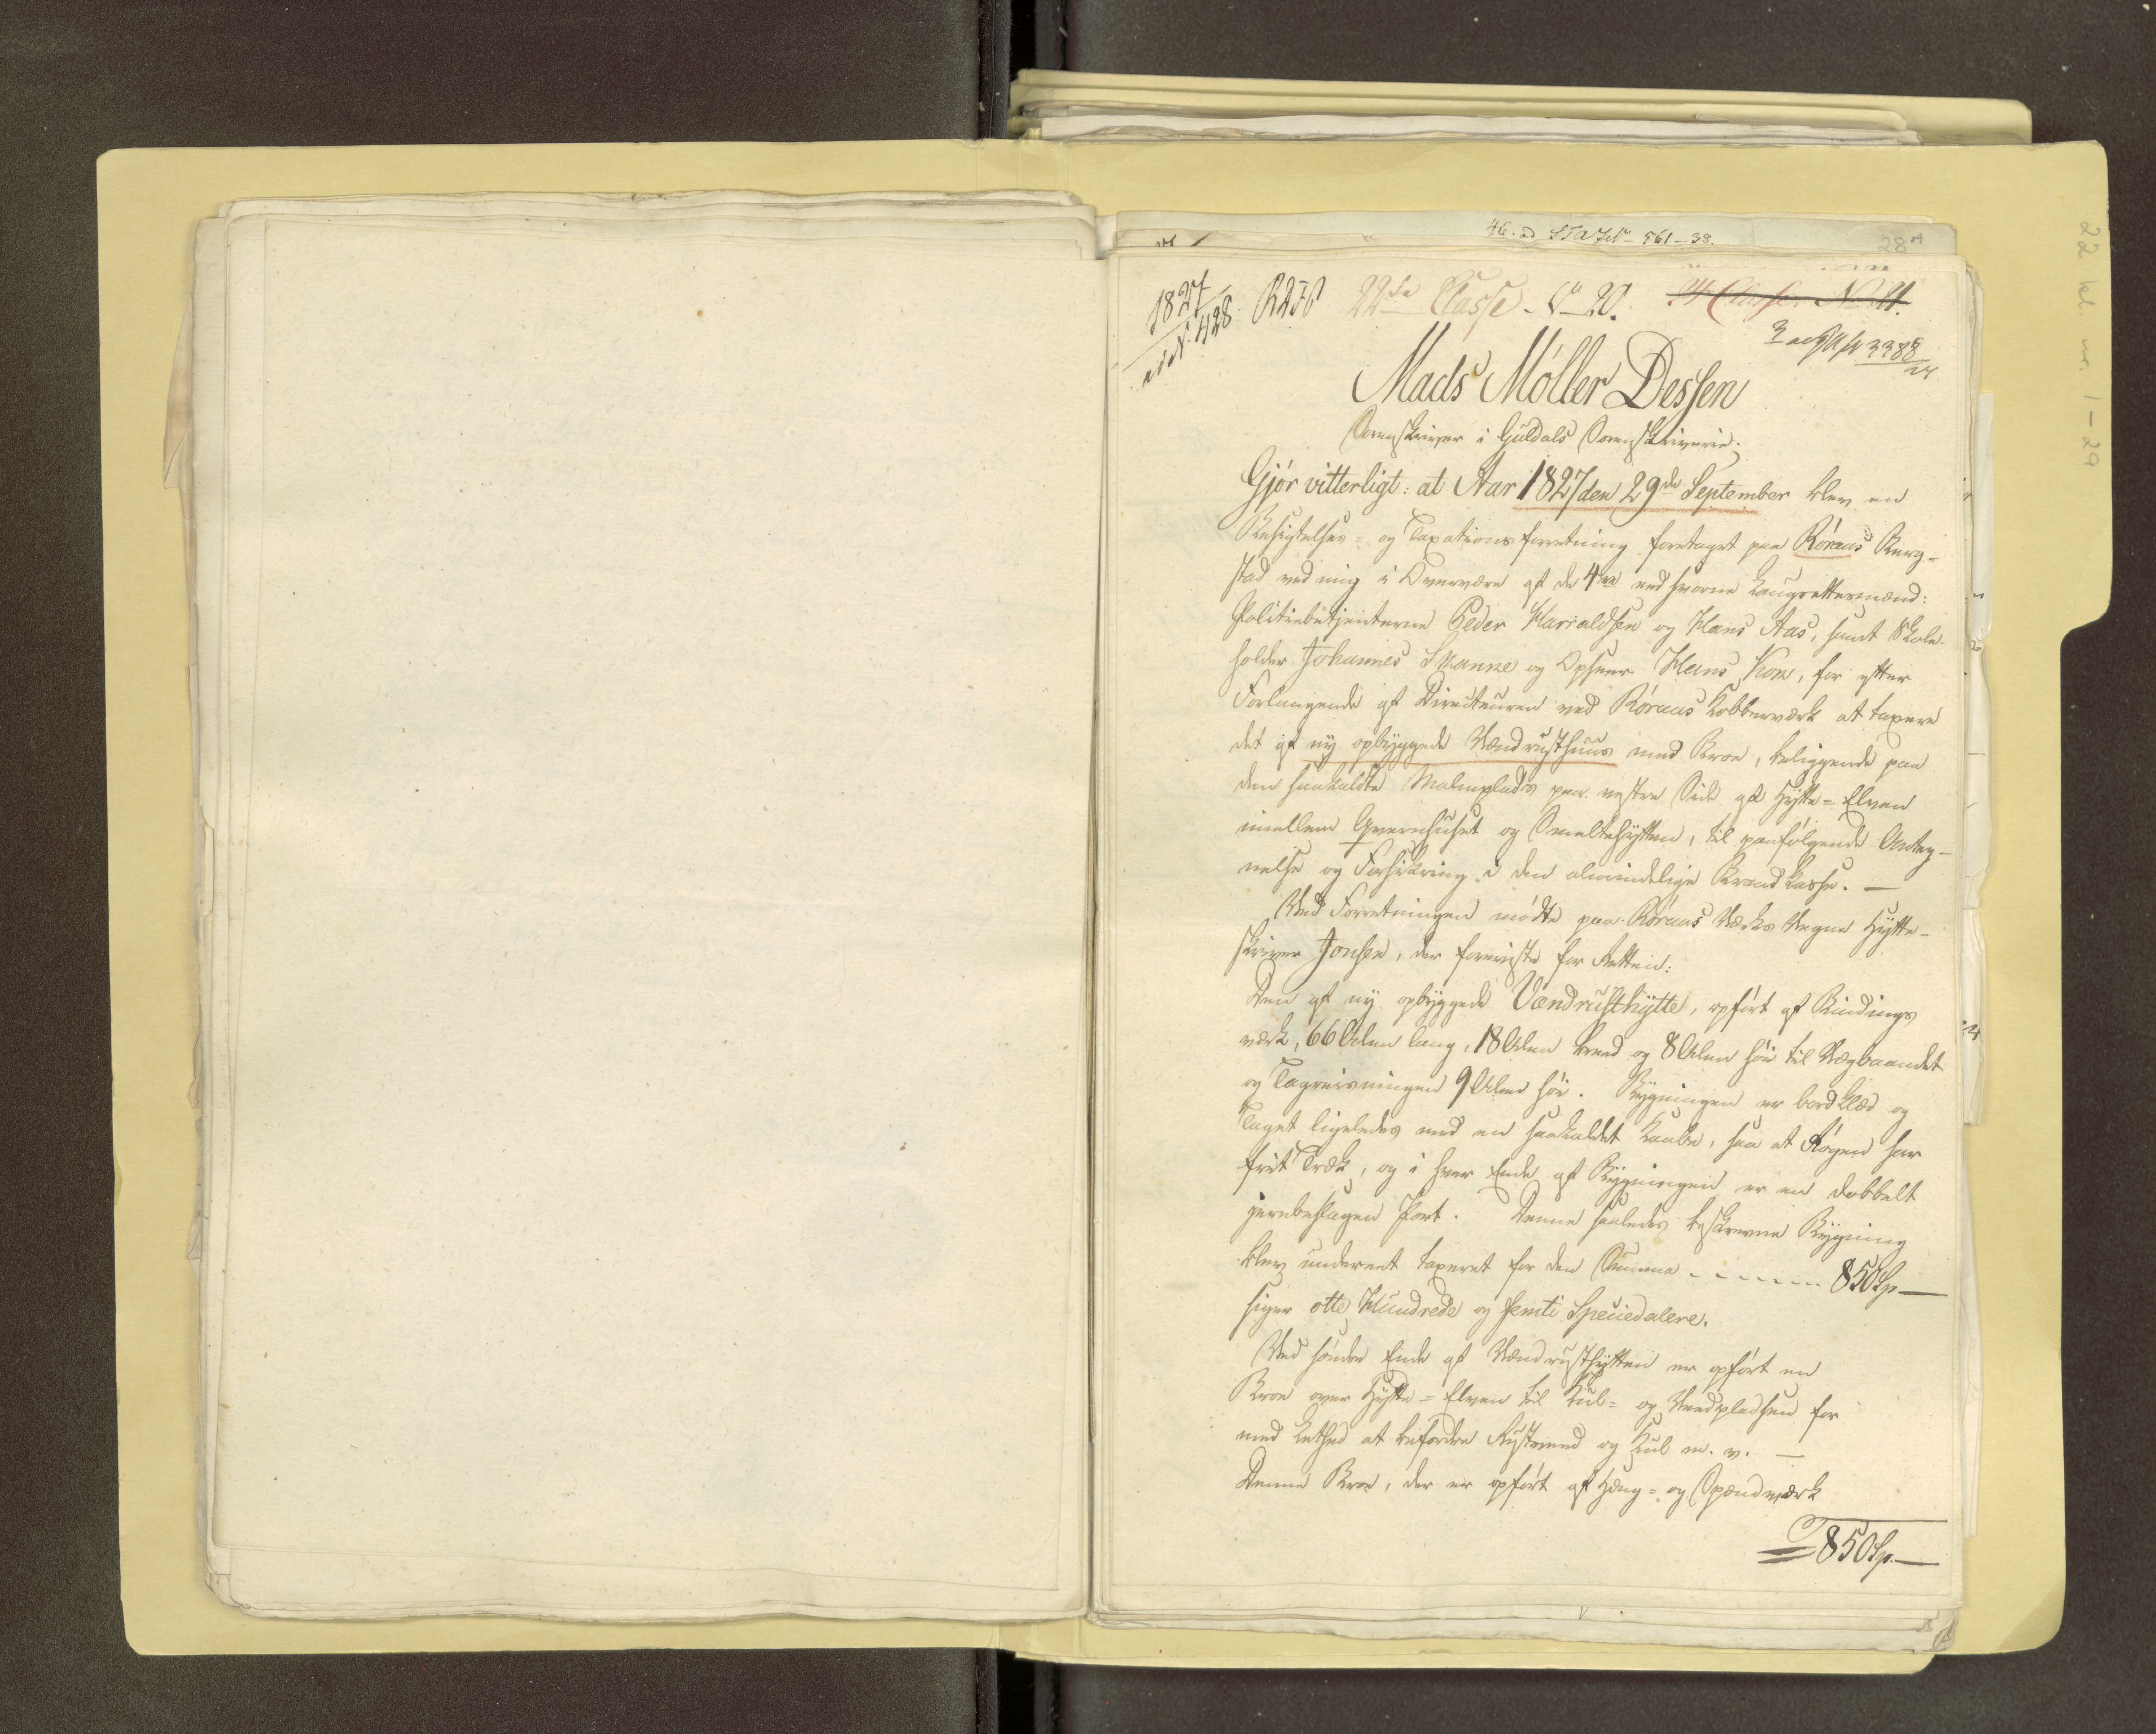 46.
561-38.
28
22 kl. nr. 1-29
1827
428
22de Classe. No 20.
3388
Mads Möller Dessen
Sorenskriver i Guldals Sorenskriverie;
Gjör vitterligt: at Aar 1827 den 29de September blev en
Besigtelses- og Taxationsforretning foretaget paa Röraas Berg-
stad ved mig i Overvære af de 4re eedsvorne Laugrettesmænd:
Politiebetjenterne Peder Harialdsen og Hans Aas, samt Skole-
holder Johannes Skanke og Opseer Hans Korn, for efter
Forlangende af Directeuren ved Röraas Kobberværk at taxere
det af ny opbyggede Vændrüsthuus med Broe, beliggende paa
den saakaldte Malmplads paa vestre Side af Hytte-Elven
imellem Qvernhuset og Smeltehytten, til paafölgende Anteg-
nelse og Forsikring i den almindelige Brandkasse. —
Ved Forretningen mödte paa Röraas Værks Vegne Hytte-
skriver Jonsen, der foreviiste for Retten:
Den af ny opbyggede Vændrüsthytte, opfört af Bindings
værk, 66 Alen lang, 18 Alen breed og 8 Alen höi til Vægbaandet
og Tagreisningen 9 Alen höi. Bygningen er bordklæd og
Taget ligeledes med en saakaldet Kaabe, saa at Rögen har
frit Træk, og i hver Ende af Bygningen er en dobbelt
jernbeslagen Port. Denne saaledes beskrevne Bygning
blev undereet taxeret for den Summa ------- 850 Sp —
siger otte Hundrede og femti Speciedalere.
Ved söndre Ende af Vændrüsthytten er opfört en
Broe over Hytte-Elven til Kul- og Veedpladsen for
med Lethed at befordre Rüstveed og Kul m. v. —
Denne Broe, der er opfört af Hæng- og Spændværk
850 Sp. —